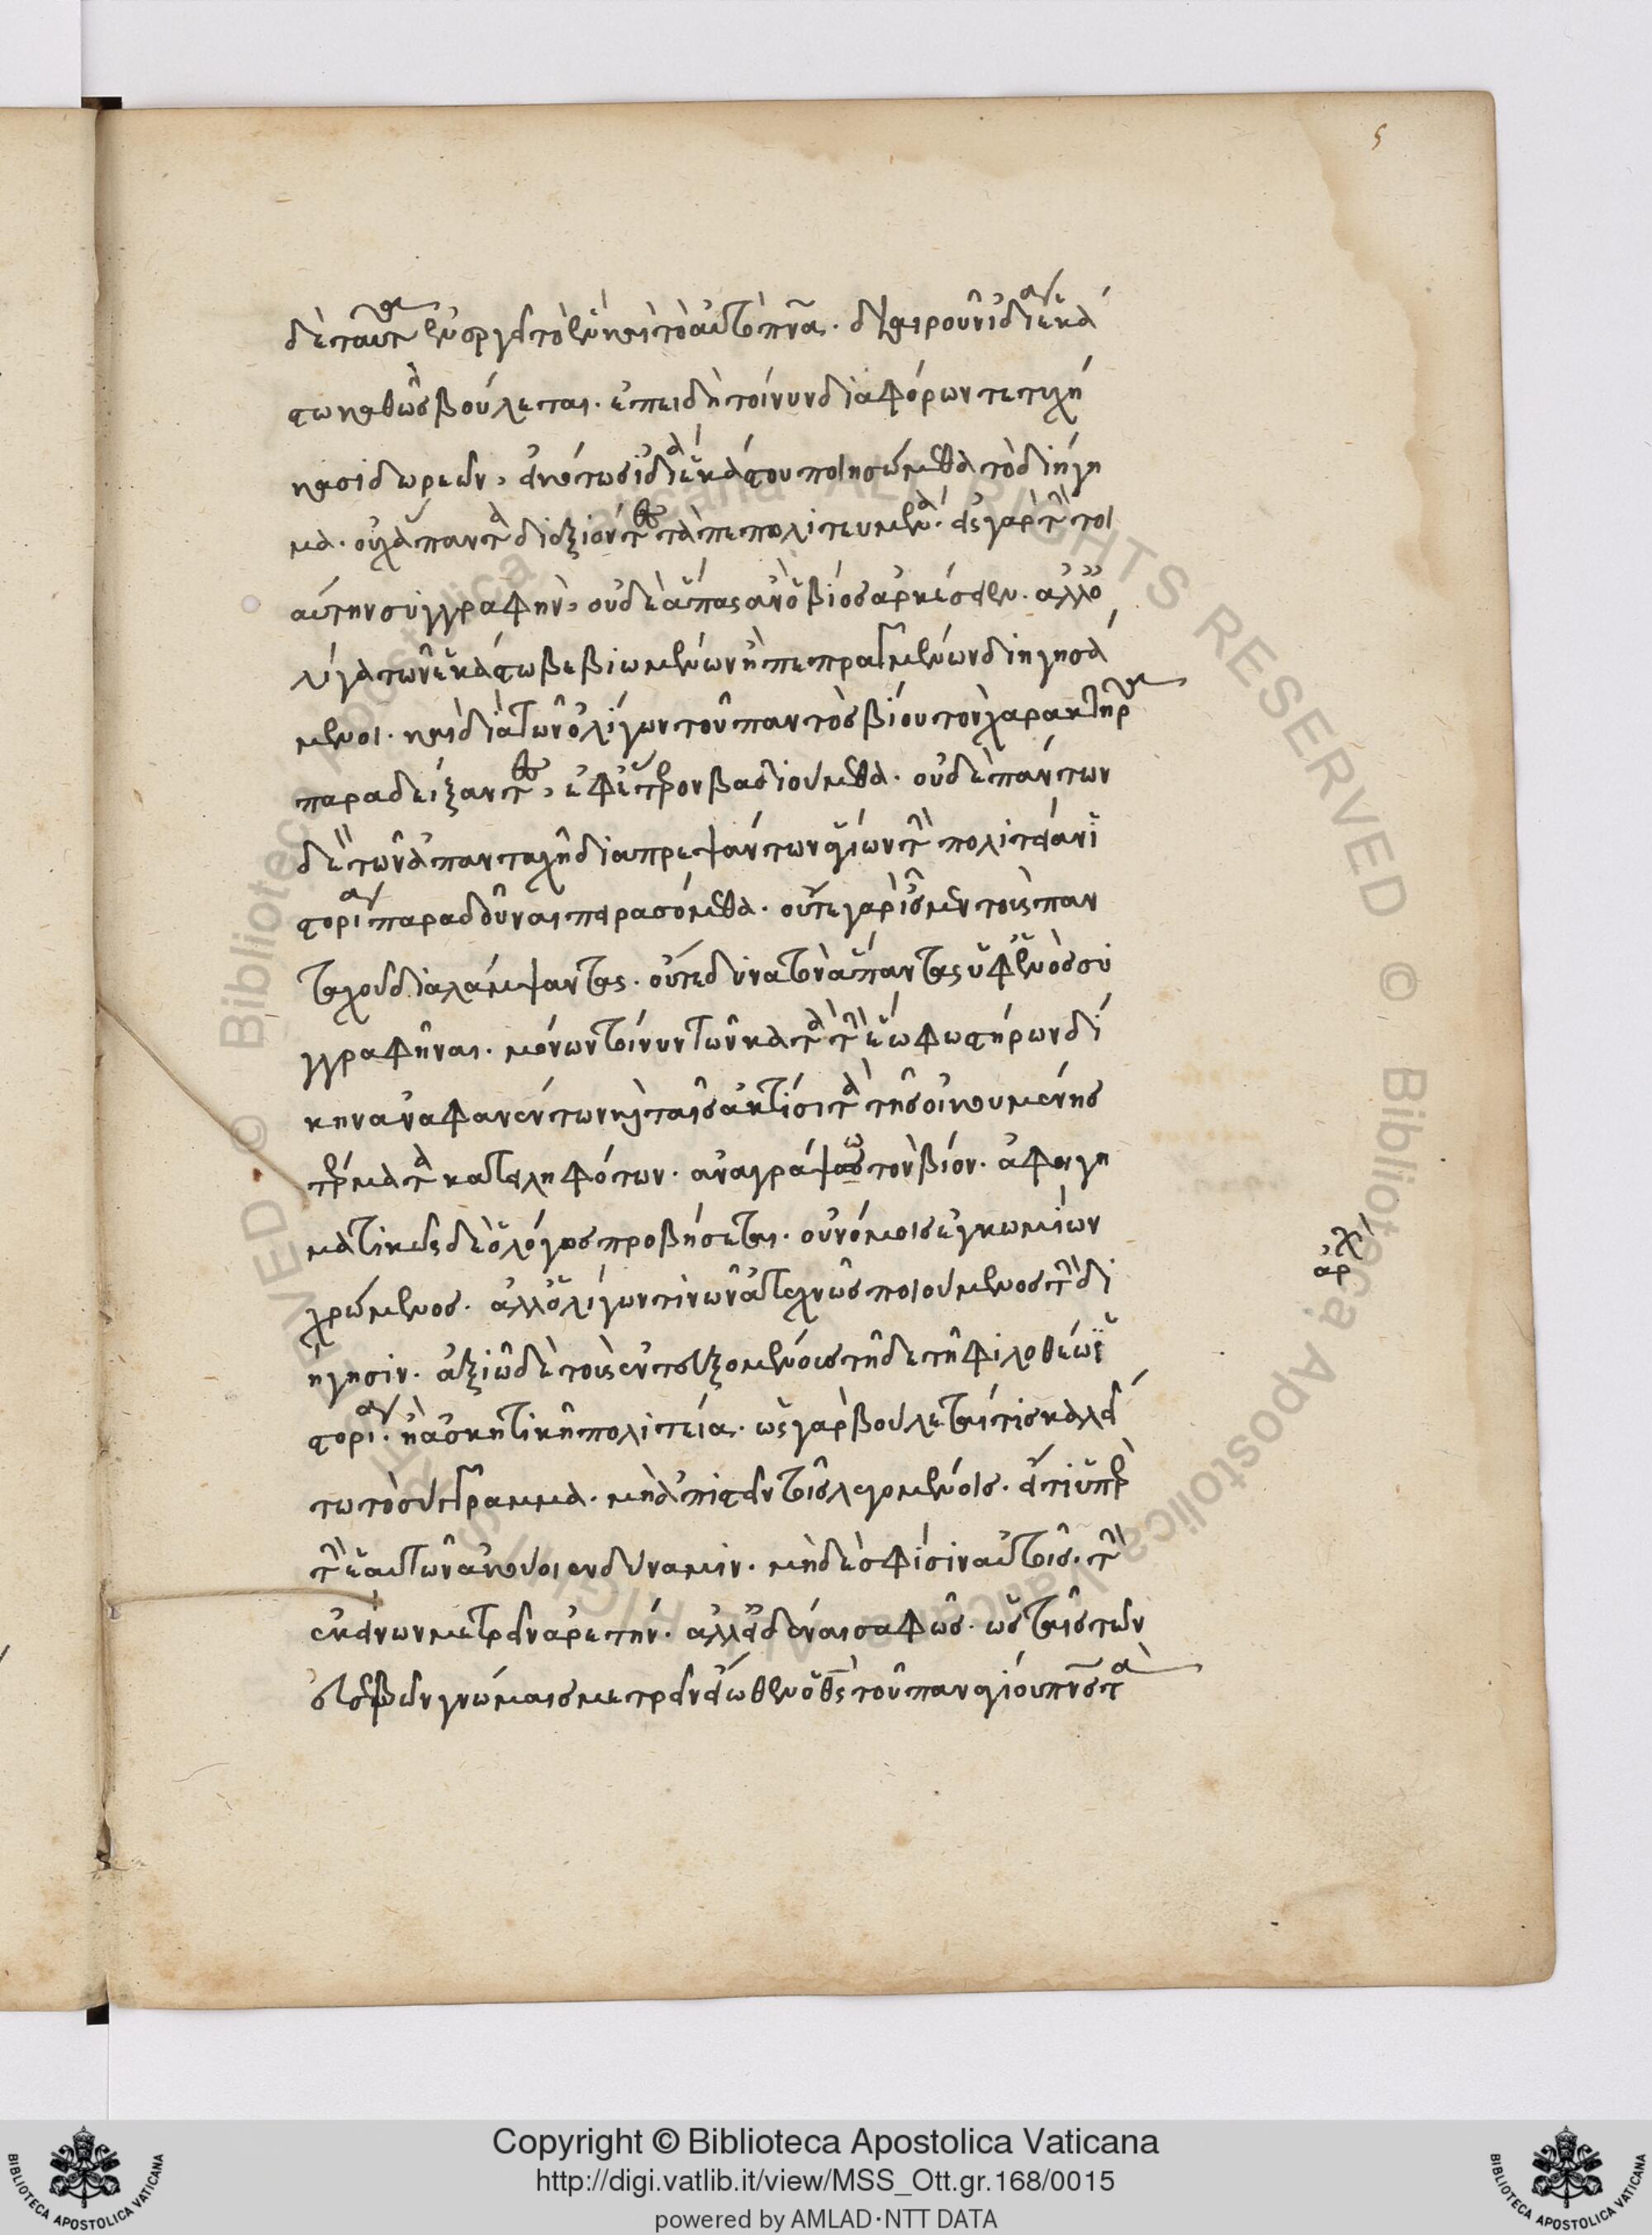 5
δὲ ταῦτα ἐνεργεῖ τὸ ἓν καὶ τὸ αὐτὸ πνεῦμα. διαιροῦν ἰδίαν ἑκά
στω καθὼς βούλεται. ἐπειδὴ τοίνυν διαφόρων τετυχή
κασι δωρεῶν, εἰκότως ἰδία ἑκάστου ποιησώμεθα τὸ διήγη
μα. οὐχ ἅπαντα διεξιόντες τὰ πεπολιτευμένα. εἰς γὰρ τὴν τοι
αύτην συγγραφὴν, οὐδὲ ἅπας ἂν ὁ βίος ἀρκέσειεν. ἀλλ' ὀ
λίγα τῶν ἑκάστω βεβιωμένων ἢ πεπραγμένων διηγησά
μενοι. καὶ διὰ τῶν ὀλίγων τοῦ παντὸς βίου τὸν χαρακτῆρα
παραδείξαντες, ἐφ' ἕτερον βαδιούμεθα. οὐδὲ πάντων
δὲ τῶν ἁπανταχῆ διαπρεψάντων ἁγίων τὴν πολιτείαν ἱ
στορίαν παραδοῦναι πειρασόμεθα. οὔτε γὰρ ἴσμεν τοὺς παν
ταχοῦ διαλάμψαντας. οὔτε δυνατὸν ἅπαντας ὑφ' ἑνὸς συ
γγραφῆναι. μόνων τοίνυν τῶν κατὰ τὴν ἕω φωστήρων δί
κην ἀναφανέντων καὶ ταῖς ἀκτῖσι τὰ τῆς οἰκουμένης
τέρματα κατειληφότων. ἀναγράψω τὸν βίον. ἀφηγη
ματικῶς δὲ ὁ λόγος προβήσεται. οὐ νόμοις ἐγκωμίων
χρώμενος. ἀλλ' ὀλίγων τινῶν ἀτεχνῶς ποιούμενος τὴν δι
ήγησιν. ἀξιῶ δὲ τοὺς ἐντευξομένους τῆδε τῆ φιλοθέω ἱ
στορίαν. ἢ ἀσκητικῆ πολιτεία. ὡς γὰρ βούλεταί τις καλεί
τω τὸ σύγγραμμα. μὴ ἀπιστεῖν τοῖς λεγομένοις. εἴ τι ὑπὲρ
τὴν ἑαυτῶν ἀκούοιεν δύναμιν. μηδὲ σφίσιν αὐτοῖς. τὴν
ἐκείνων μετρεῖν ἀρετήν. ἀλλ' εἰδέναι σαφῶς. ὡς ταῖς τῶν
εὐσεβῶν γνώμαις μετρεῖν εἴωθεν ὁ θεὸς τοῦ παναγίου πνεύματος τὰ
ἀρχ
Copyright © Biblioteca Apostolica Vaticana
http://digi.vatlib.it/view/MSS_Ott.gr.168/0015
powered by AMLAD·NTT DATA